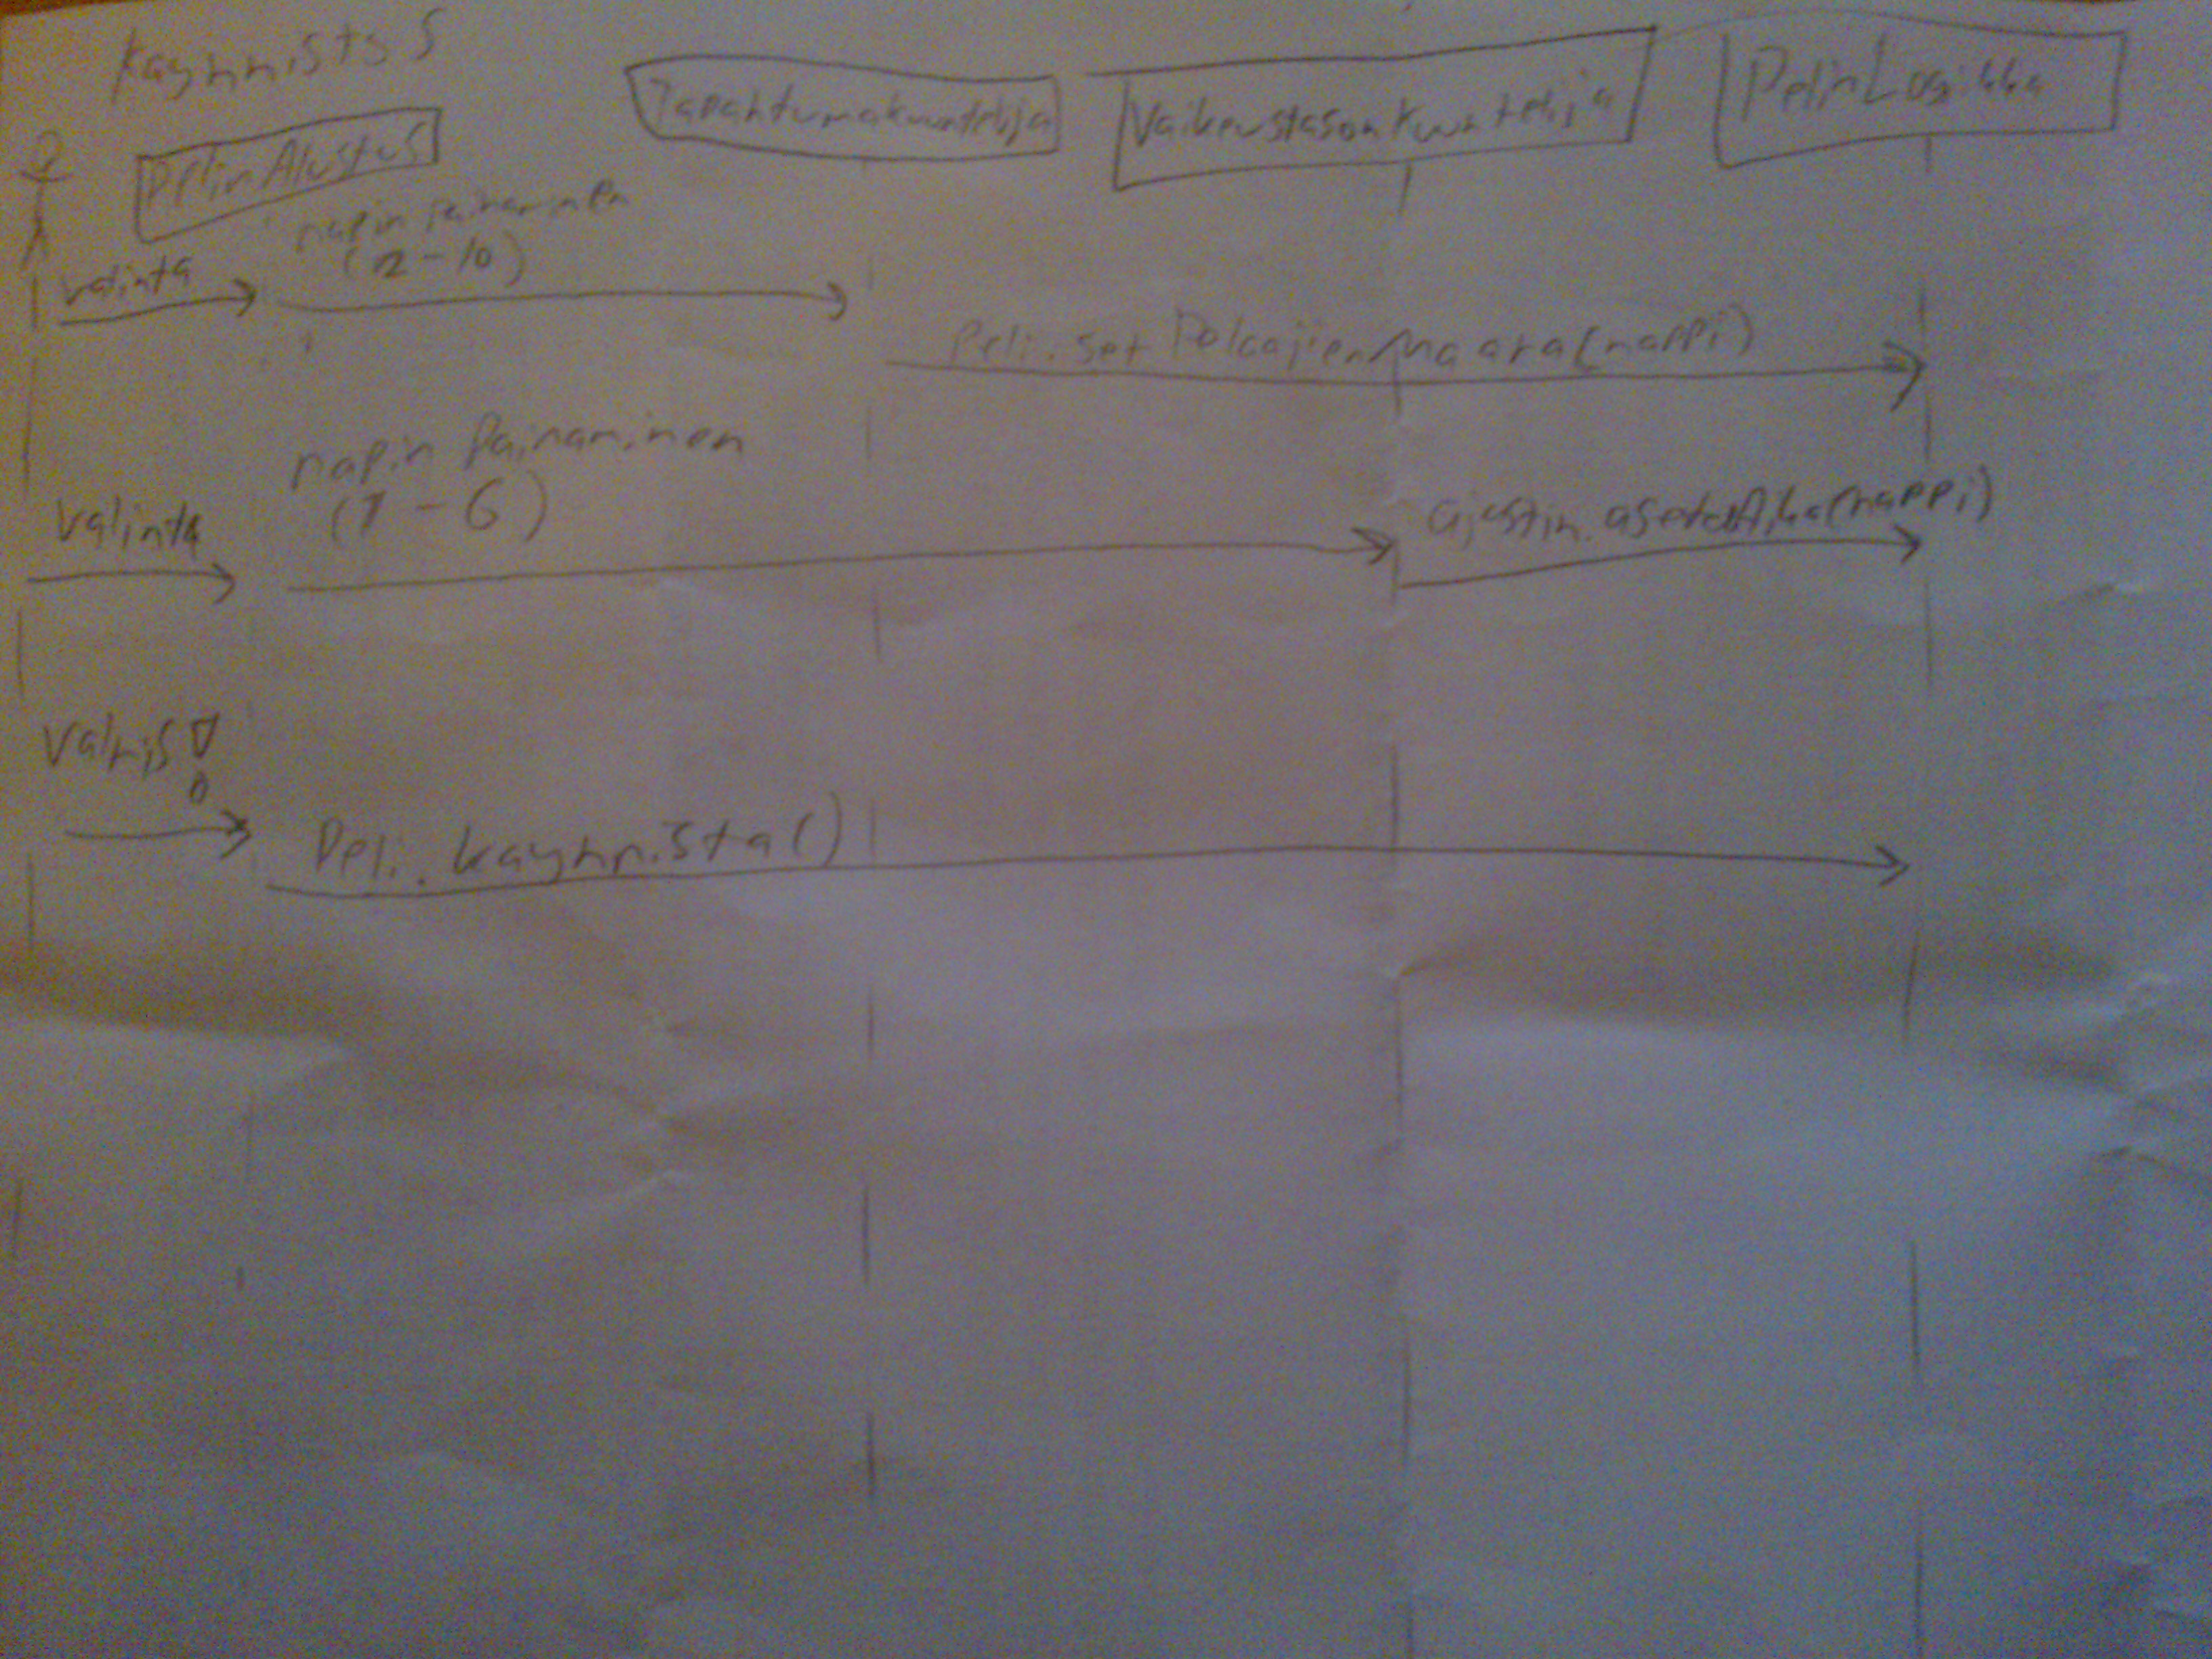 Kaynnistys
PelinAlustus
Tapahtumakuuntelija
VaikeustasonKuuntelija
PelinLogiikka
napin painaminen
(2-10)
valinta
Peli.setPelaajienMaara(nappi)
napin painaminen
(1-6)
valinta
ajastin.asetaAika(nappi)
Valmis!
Peli.kaynnista()